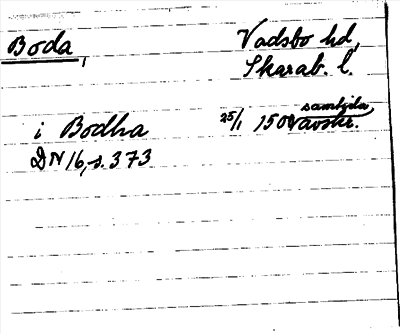 Boda,
Vadsbo hd,
Skarab. l.
i Bodha 25/1 150 samtida avskr.
DN 16, s. 373